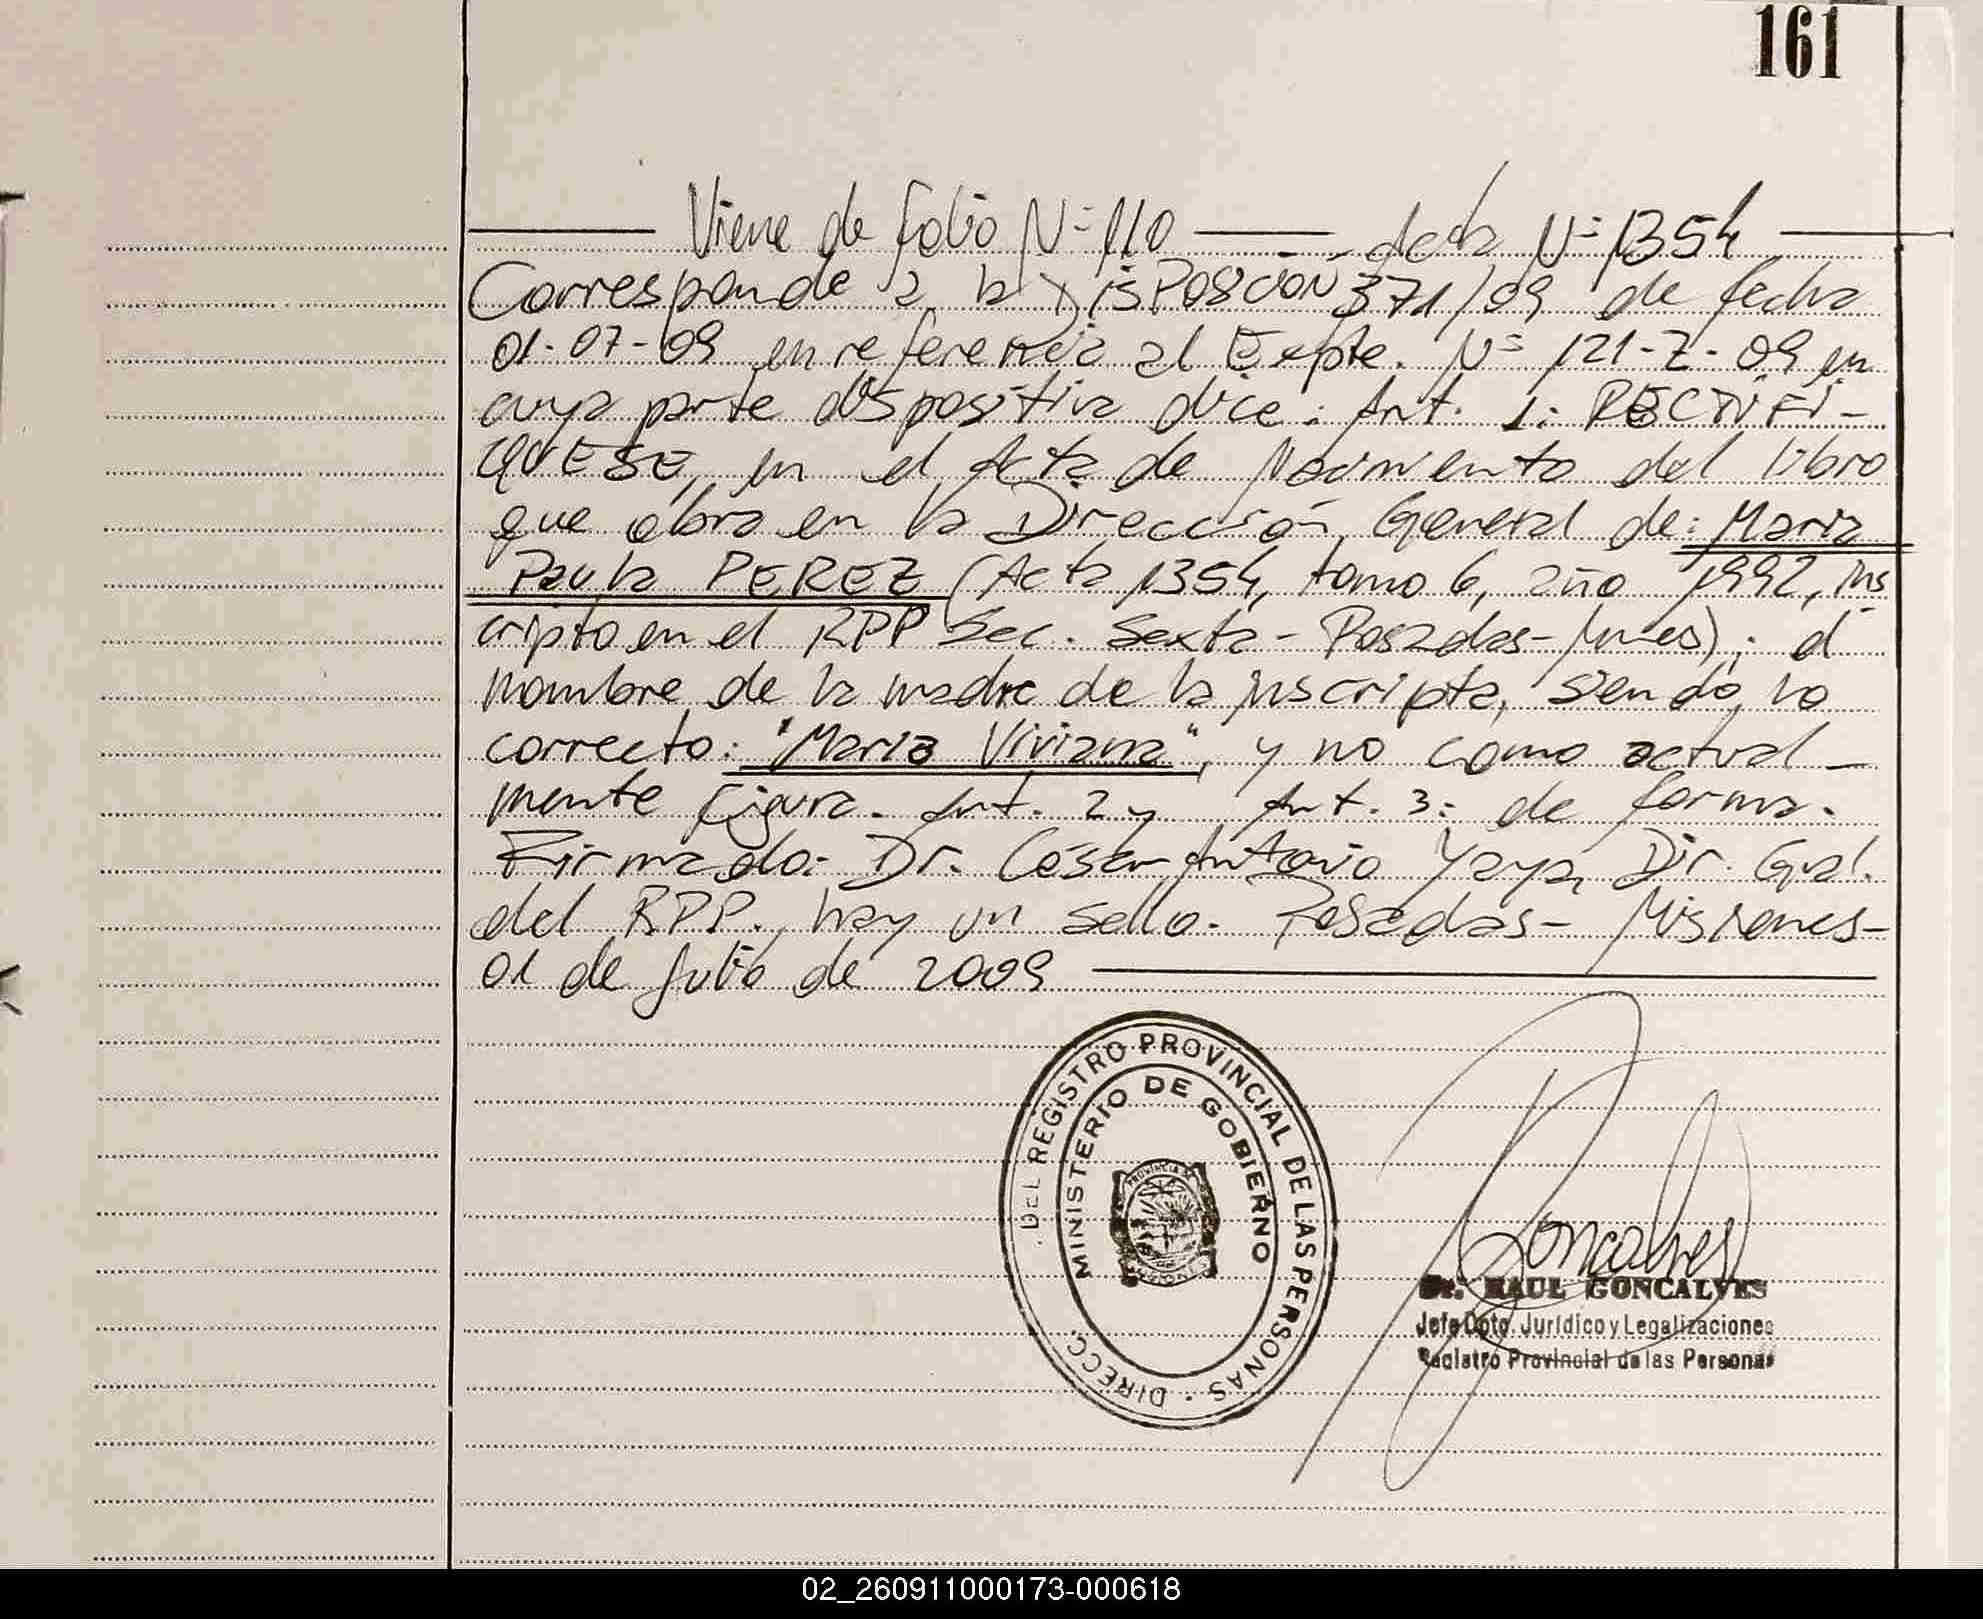 161
Viene de folio N= 110 Acta N= 1354
Corresponde a la DISPOSICION 371/09 de fecha
01-07-09 en referencia al Expte. N= 121-Z-09 en
cuya parte dispositiva dice: Art. 1: RECTIFI-
QUESE, en el Acta de Nacimiento del libro
que obra en la Dirección General de: Maria
Paula PEREZ (Acta 1354, tomo 6, año 1992, ins
cripto en el RPP Sec. Sexta - Posadas - Mnes); el
nombre de la madre de la inscripta, siendo lo
correcto: "Maria Viviana", y no como actual-
mente figura. Art. 2 y Art. 3: de forma.
Firmado: Dr. César Antonio Yaya, Dir. Gral.
del RPP., hay un sello. Posadas - Misiones -
01 de Julio de 2009
DIRECC. DEL REGISTRO PROVINCIAL DE LAS PERSONAS
MINISTERIO DE GOBIERNO
Goncalves
Dr. RAUL GONCALVES
Jefe Dpto. Jurídico y Legalizaciones
Registro Provincial de las Personas
02_260911000173-000618